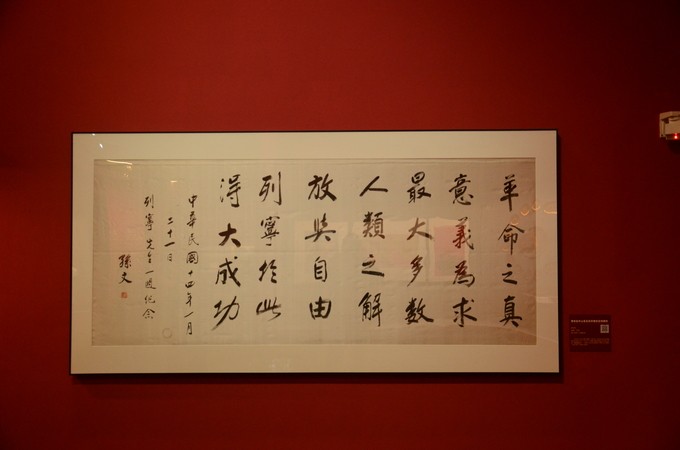 革命之真
意義為求
最大多數
人類之解
放與自由
列寧於此
得大成功
中華民國十四年一月
二十一日
列寧先生一週紀念
孫文